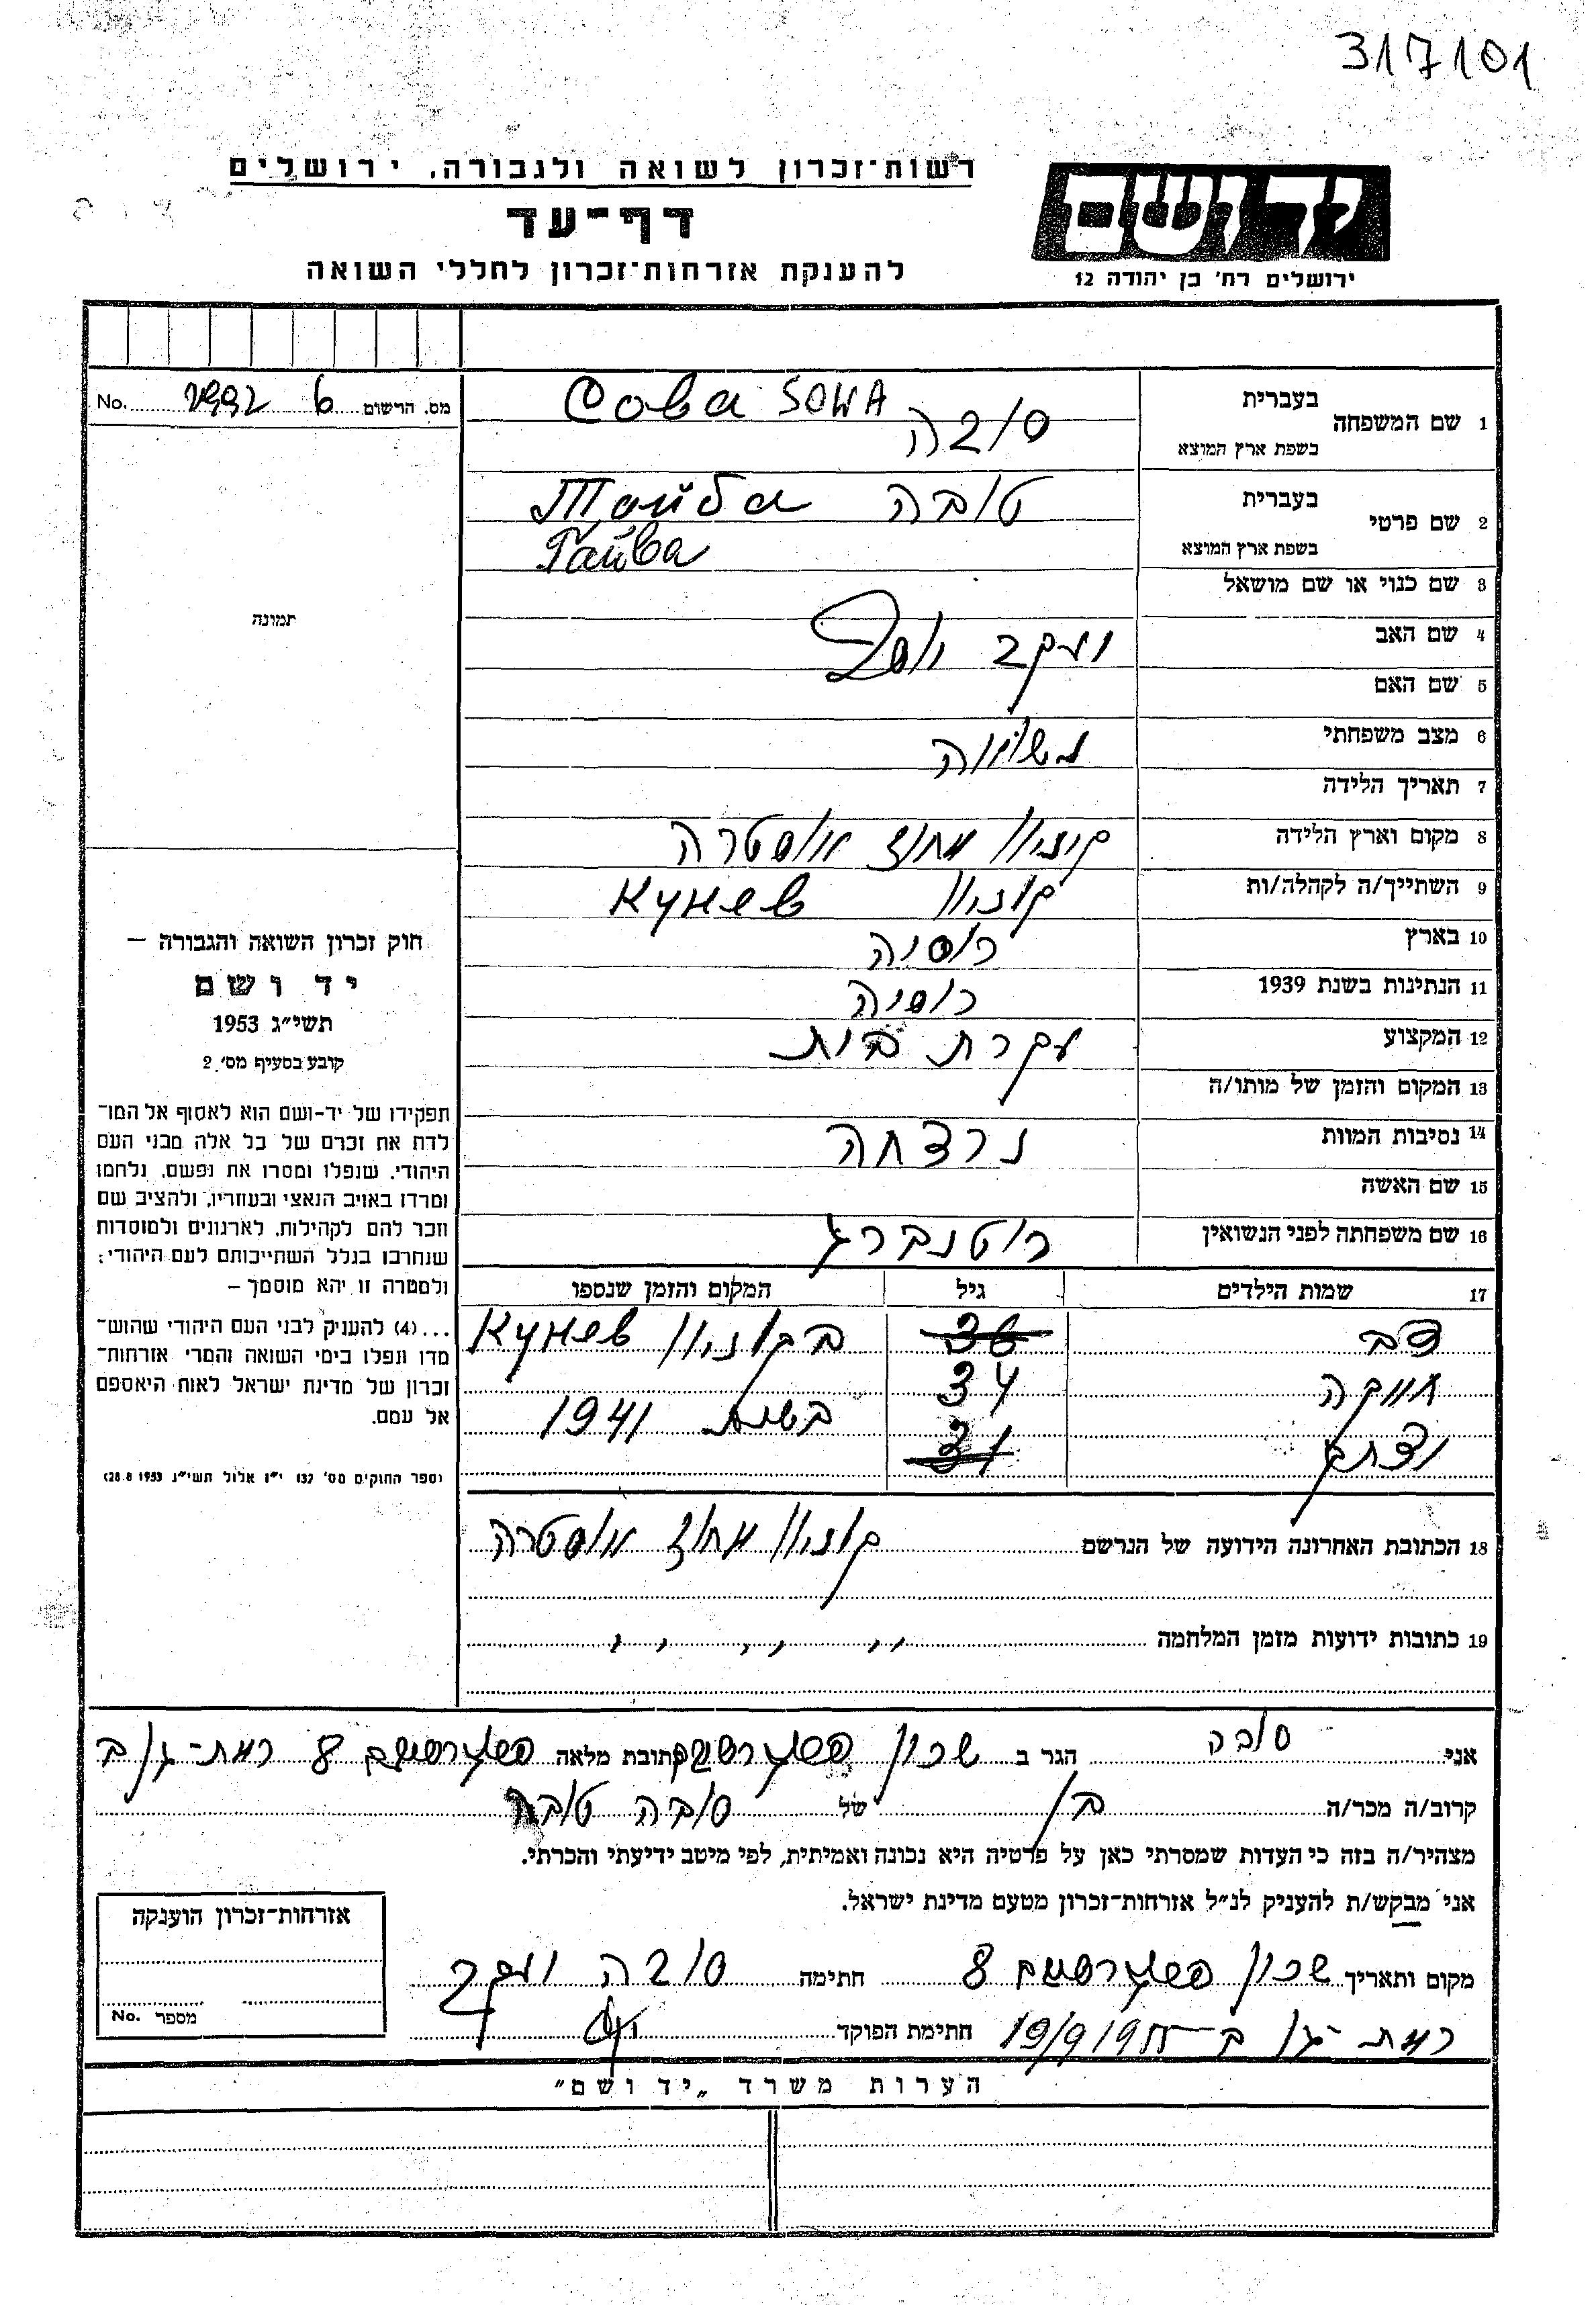 317101
רשות-זכרון לשואה ולגבורה, ירושלים
דף-עד
להענקת אזרחות-זכרון לחללי השואה
יד ושם
ירושלים רח' בן יהודה 12
מס. הרשום 6 No.
1 שם המשפחה בעברית סובה Сова SOWA
בשפת ארץ המוצא
2 שם פרטי בעברית טובה Тайба
בשפת ארץ המוצא Тайва
3 שם כנוי או שם מושאל
4 שם האב יעקב יוסף
5 שם האם
6 מצב משפחתי נשואה
7 תאריך הלידה
8 מקום וארץ הלידה קוניוו מחוז אוסטרה
9 השתייך/ה לקהלה/ות קוניוו Кунев
10 בארץ רוסיה
11 הנתינות בשנת 1939 רוסיה
12 המקצוע עקרת בית
13 המקום והזמן של מותו/ה
14 נסיבות המוות נרצחה
15 שם האשה
16 שם משפחתה לפני הנשואין רוטנברג
17 שמות הילדים גיל המקום והזמן שנספו
36 בקוניוו Кунев
34
31 בשנת 1941
18 הכתובת האחרונה הידועה של הנרשם קוניוו מחוז אוסטרה
19 כתובות ידועות מזמן המלחמה
תמונה
חוק זכרון השואה והגבורה –
יד ושם
תשי״ג 1953
קובע בסעיף מס׳ 2
תפקידו של יד-ושם הוא לאסוף אל המו־
לדת את זכרם של כל אלה מבני העם
היהודי, שנפלו ומסרו את נפשם, נלחמו
ומרדו באויב הנאצי ובעוזריו, ולהציב שם
וזכר להם לקהילות, לארגונים ולמוסדות
שנחרבו בגלל השתייכותם לעם היהודי;
ולמטרה זו יהא מוסמך –
...(4) להעניק לבני העם היהודי שהוש־
מדו ונפלו בימי השואה והמרי אזרחות־
זכרון של מדינת ישראל לאות היאספם
אל עמם.
(ספר החוקים מס׳ 132 י״ז אלול תשי״ג 28.8.1953)
אני סובה הגר ב שכון כתובת מלאה 8 רמת-גן ב
קרוב/ה מכר/ה בן של סובה טובה
מצהיר/ה בזה כי העדות שמסרתי כאן על פרטיה היא נכונה ואמיתית, לפי מיטב ידיעתי והכרתי.
אני מבקש/ת להעניק לנ״ל אזרחות-זכרון מטעם מדינת ישראל.
מקום ותאריך שכון 8 חתימה סובה יעקב
רמת-גן ב- חתימת הפוקד
אזרחות-זכרון הוענקה
מספר No.
הערות משרד „יד ושם״